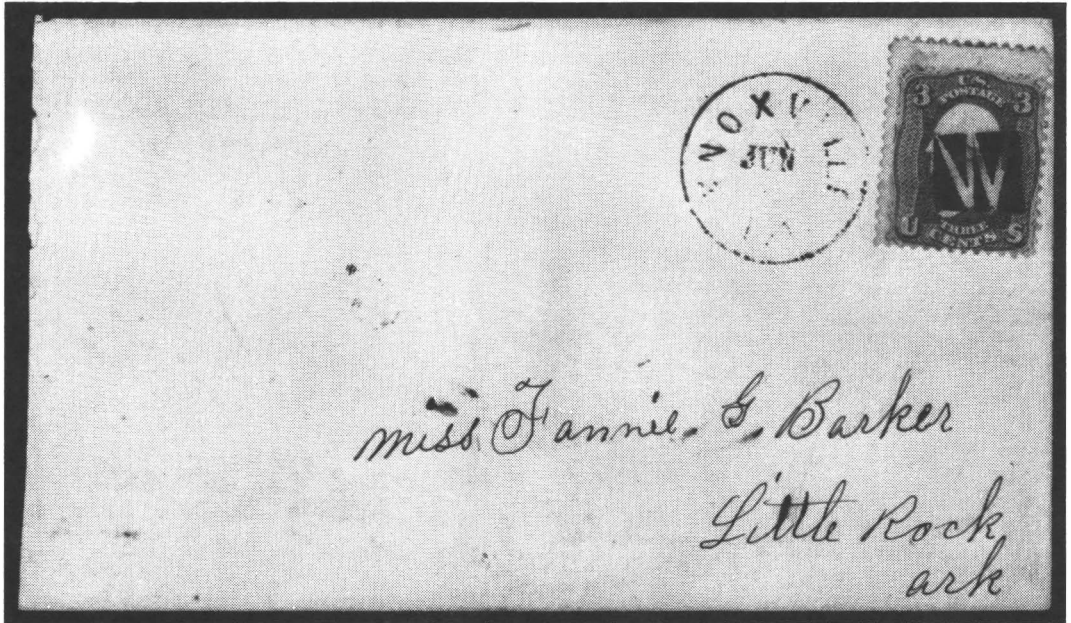 NOXVILL
JUN
3 U.S. 3
POSTAGE
U THREE S
CENTS
Miss Fannie. G. Barker
Little Rock
ark